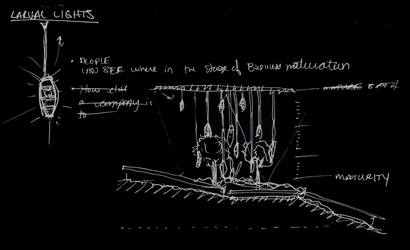 LARVAL LIGHTS
• PEOPLE
CAN SEE where in the stage of Business maturation
• How
a company is
to
MATURITY